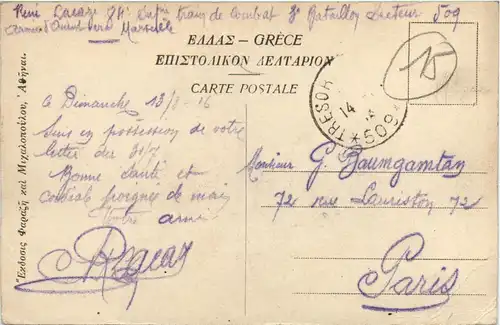 René Lacaze 84e Infrie train de Combat 3e Bataillon Secteur 509
armée d'Orient vers Marseille
ΕΛΛΑΣ – GRÈCE
ΕΠΙΣΤΟΛΙΚΟΝ ΔΕΛΤΑΡΙΟΝ
CARTE POSTALE
15
TRESOR
14
*509*
Ἔκδοσις Φαραζῆ καὶ Μιχαλοπούλου, Ἀθῆναι.
a Dimanche 13/8-16
Suis en possession de votre
lettre du 30/7
Bonne santé et
cordiale poignée de main
Votre ami
RLacaze
Monsieur G. Baumgamtan
72 rue Lauriston 72
Paris